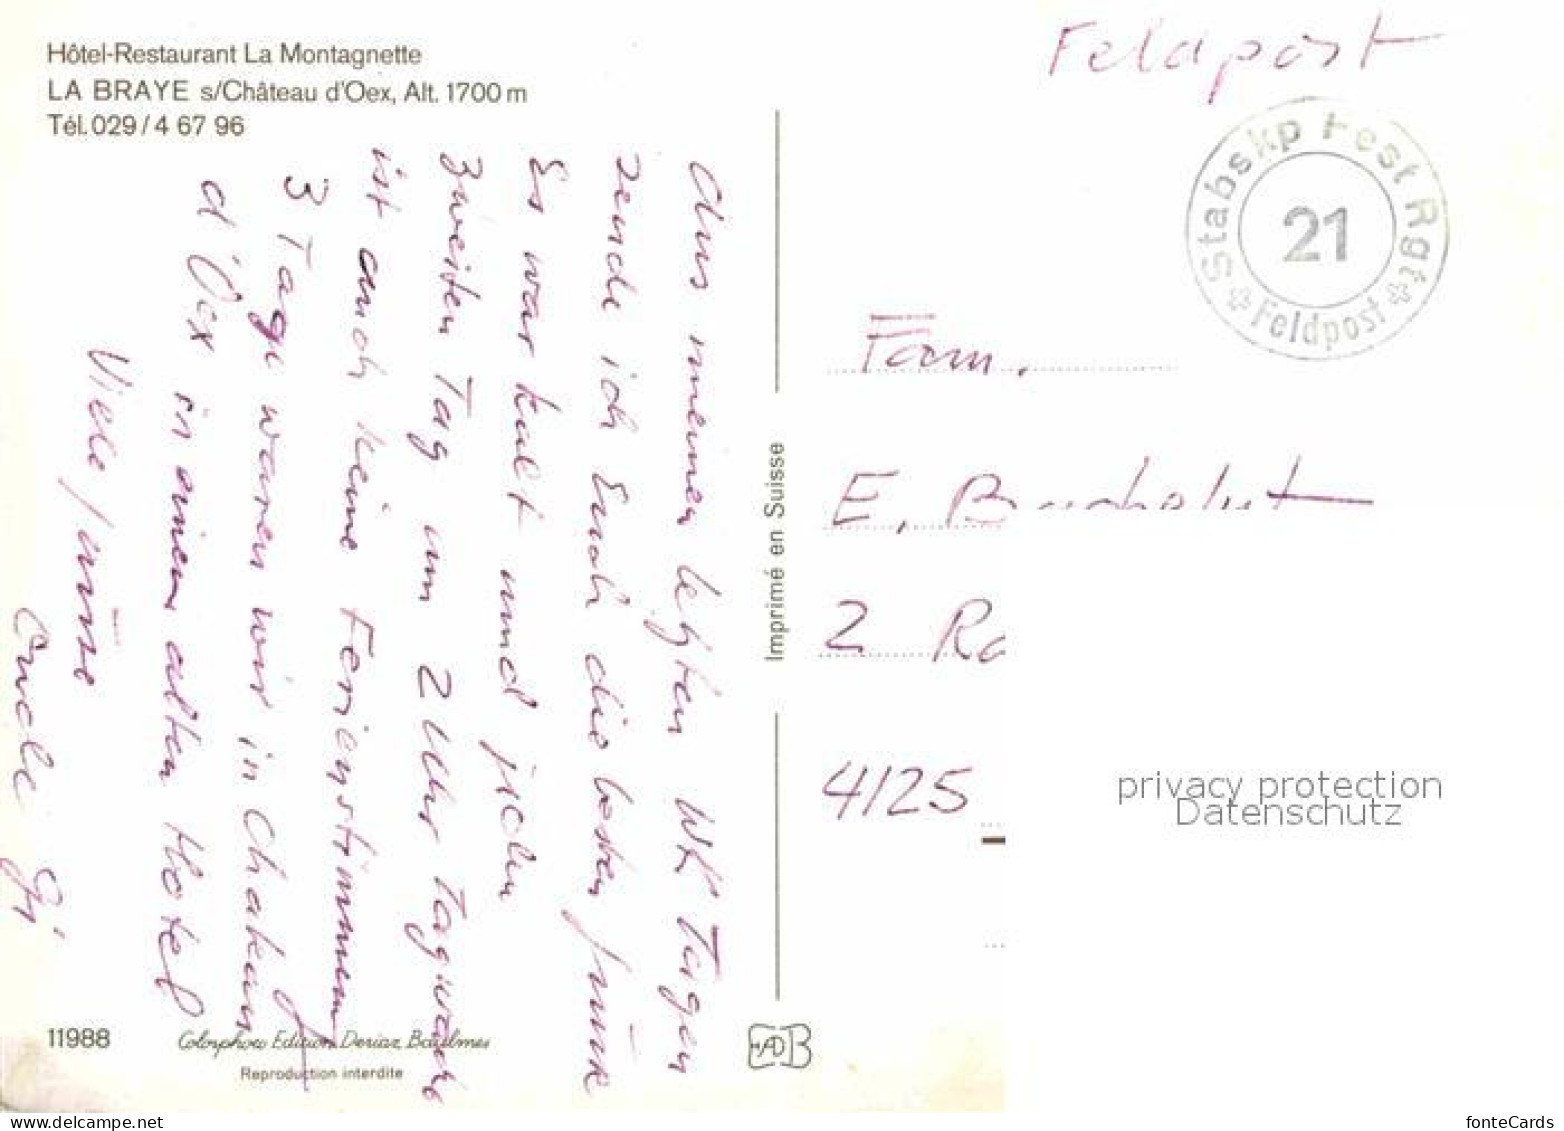 Hôtel-Restaurant La Montagnette
LA BRAYE s/Château d'Oex, Alt. 1700 m
Tél. 029 / 4 67 96
Aus meinen letzten WK Tagen
sende ich Euch die besten Grüsse
Es war kalt und jeden
zweiten Tag um 2 Uhr Tagwache
ist auch keine Ferienstimmung
3 Tage waren wir in Chateau
d'Oex in einem alten Hotel
Viele Grüsse
Imprimé en Suisse
Feldpost
Stabskp Fest Rgt
21
Feldpost
Fam.
E.
2 Ra
4125
privacy protection
Datenschutz
11988
Colorphoto Edition Deriaz, Baulmes
Reproduction interdite
fonteCards